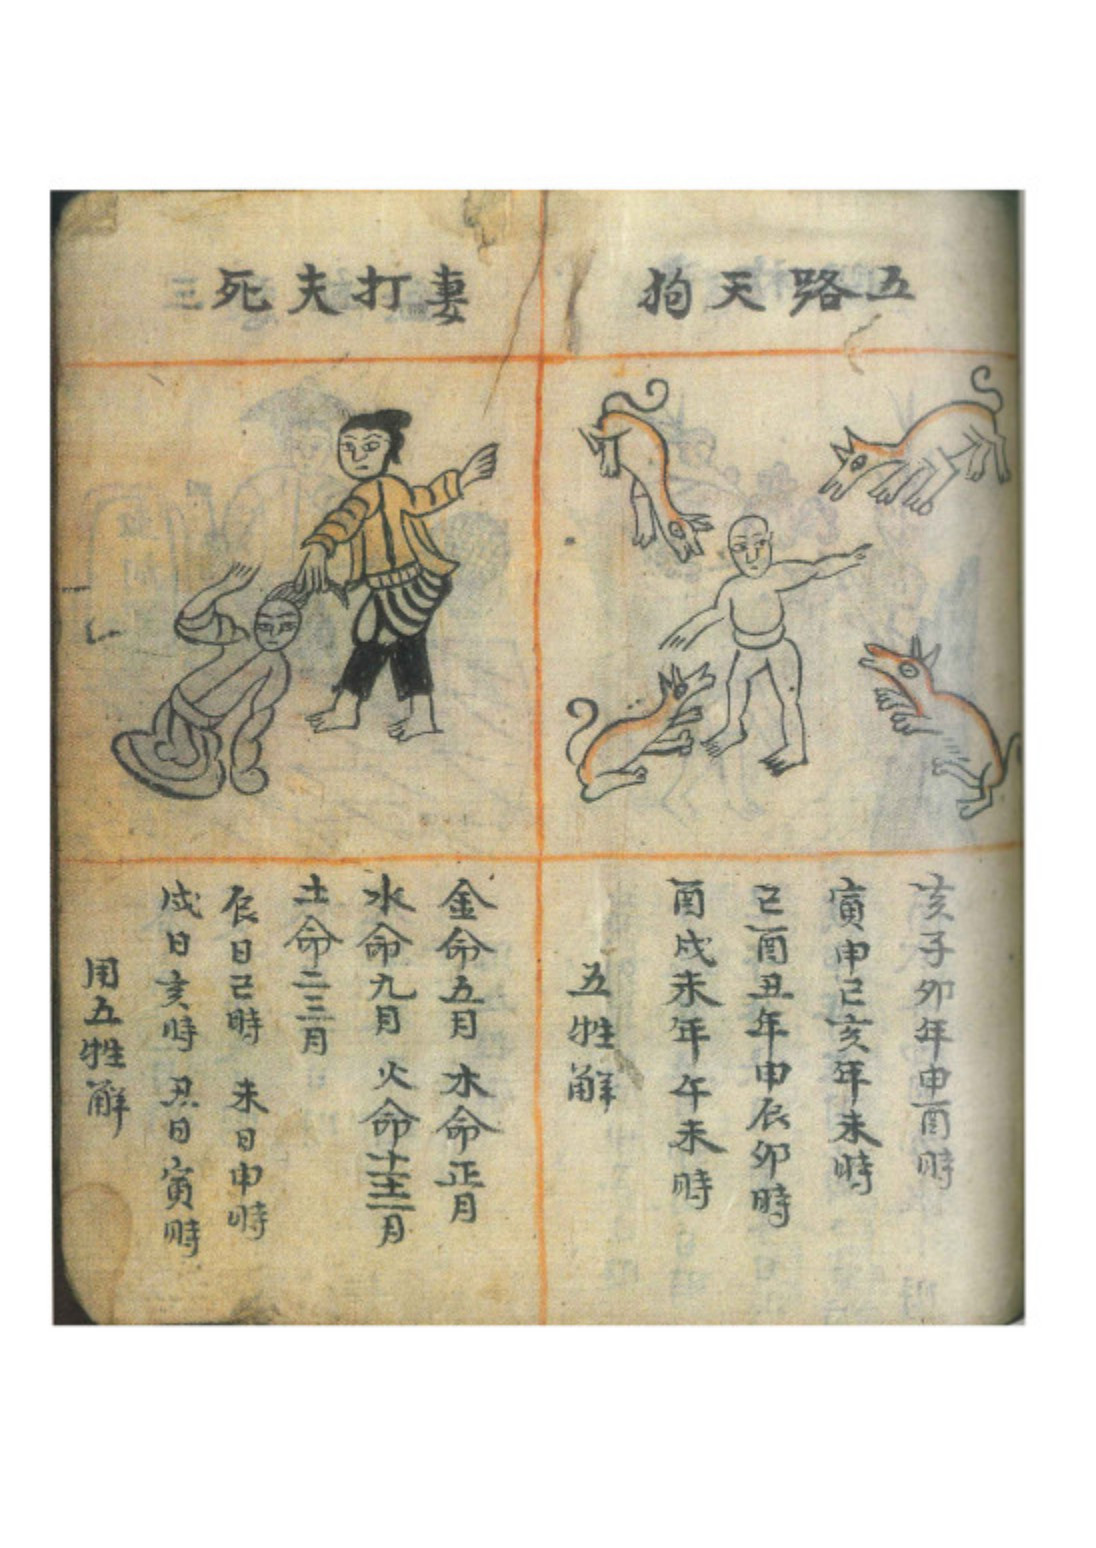 五路天狗
亥子卯年申酉時
寅申己亥年未時
己酉丑年申辰卯時
酉戌未年午未時
五牲解
妻打夫死三
金命五月 木命正月
水命九月 火命十二月
土命二三月
辰日己時 未日申時
戌日亥時 丑日寅時
用五牲解